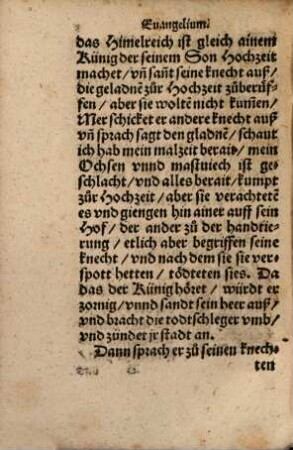 Euangelium.
das Himelreich ist gleich ainem
Künig der seinem Son Hochzeit
machet / vñ sañt seine knecht auß /
die geladnē zůr Hochzeit zůberüf-
fen / aber sie woltē nicht kum̃en /
Mer schicket er andere knecht auß
vñ sprach sagt den gladnē / schaut
ich hab mein malzeit berait / mein
Ochsen vnnd mastuiech ist ge-
schlacht / vnd alles berait / kumpt
zůr Hochzeit / aber sie verachtetē
es vnd giengen hin ainer auff sein
Hof / der ander zů der handtie-
rung / etlich aber begriffen seine
knecht / vnd nach dem sie sie ver-
spott hetten / tödteten sies. Da
das der Künig höret / würdt er
zornig / vnnd sandt sein heer auß /
vnd bracht die todtschleger vmb /
vnd zünder jr stadt an.
Dann sprach er zů seinen knech-
ten